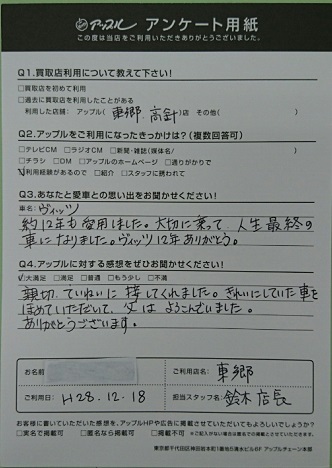 アップル アンケート用紙
この度は当店をご利用いただきありがとうございました。
Q1.買取店利用について教えて下さい!
□買取店を初めて利用
□過去に買取店を利用したことがある
利用した店舗: アップル( 東郷 高針 )店 その他( )
Q2.アップルをご利用になったきっかけは?(複数回答可)
□テレビCM □ラジオCM □新聞・雑誌(媒体名/ )
□チラシ □DM □アップルのホームページ □通りがかりで
☑利用経験があるので □紹介 □スタッフに誘われて
Q3.あなたと愛車との思い出をお聞かせください!
車名: ヴィッツ
約12年も愛用しました。大切に乗って、人生最終の
車になりました。ヴィッツ12年ありがとう。
Q4.アップルに対する感想をぜひお聞かせください!
☑大満足 □満足 □普通 □もう少し □不満
親切、ていねいに接してくれました。きれいにしていた車を
ほめていただいて、父はよろこんでいました。
ありがとうございます。
お名前
ご利用店名: 東郷
ご利用日: H28.12.18
担当スタッフ名: 鈴木店長
お客様に書いていただいた感想を、アップルHPや広告に掲載させていただいてもよろしいでしょうか?
□実名で掲載可 □匿名なら掲載可 □掲載不可 ※ご記入がない場合は匿名にて掲載させていただきます。
東京都千代田区神田岩本町1番地5清水ビル6F アップルチェーン本部